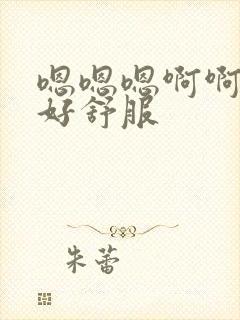 嗯嗯嗯啊啊
好舒服
朱蕾